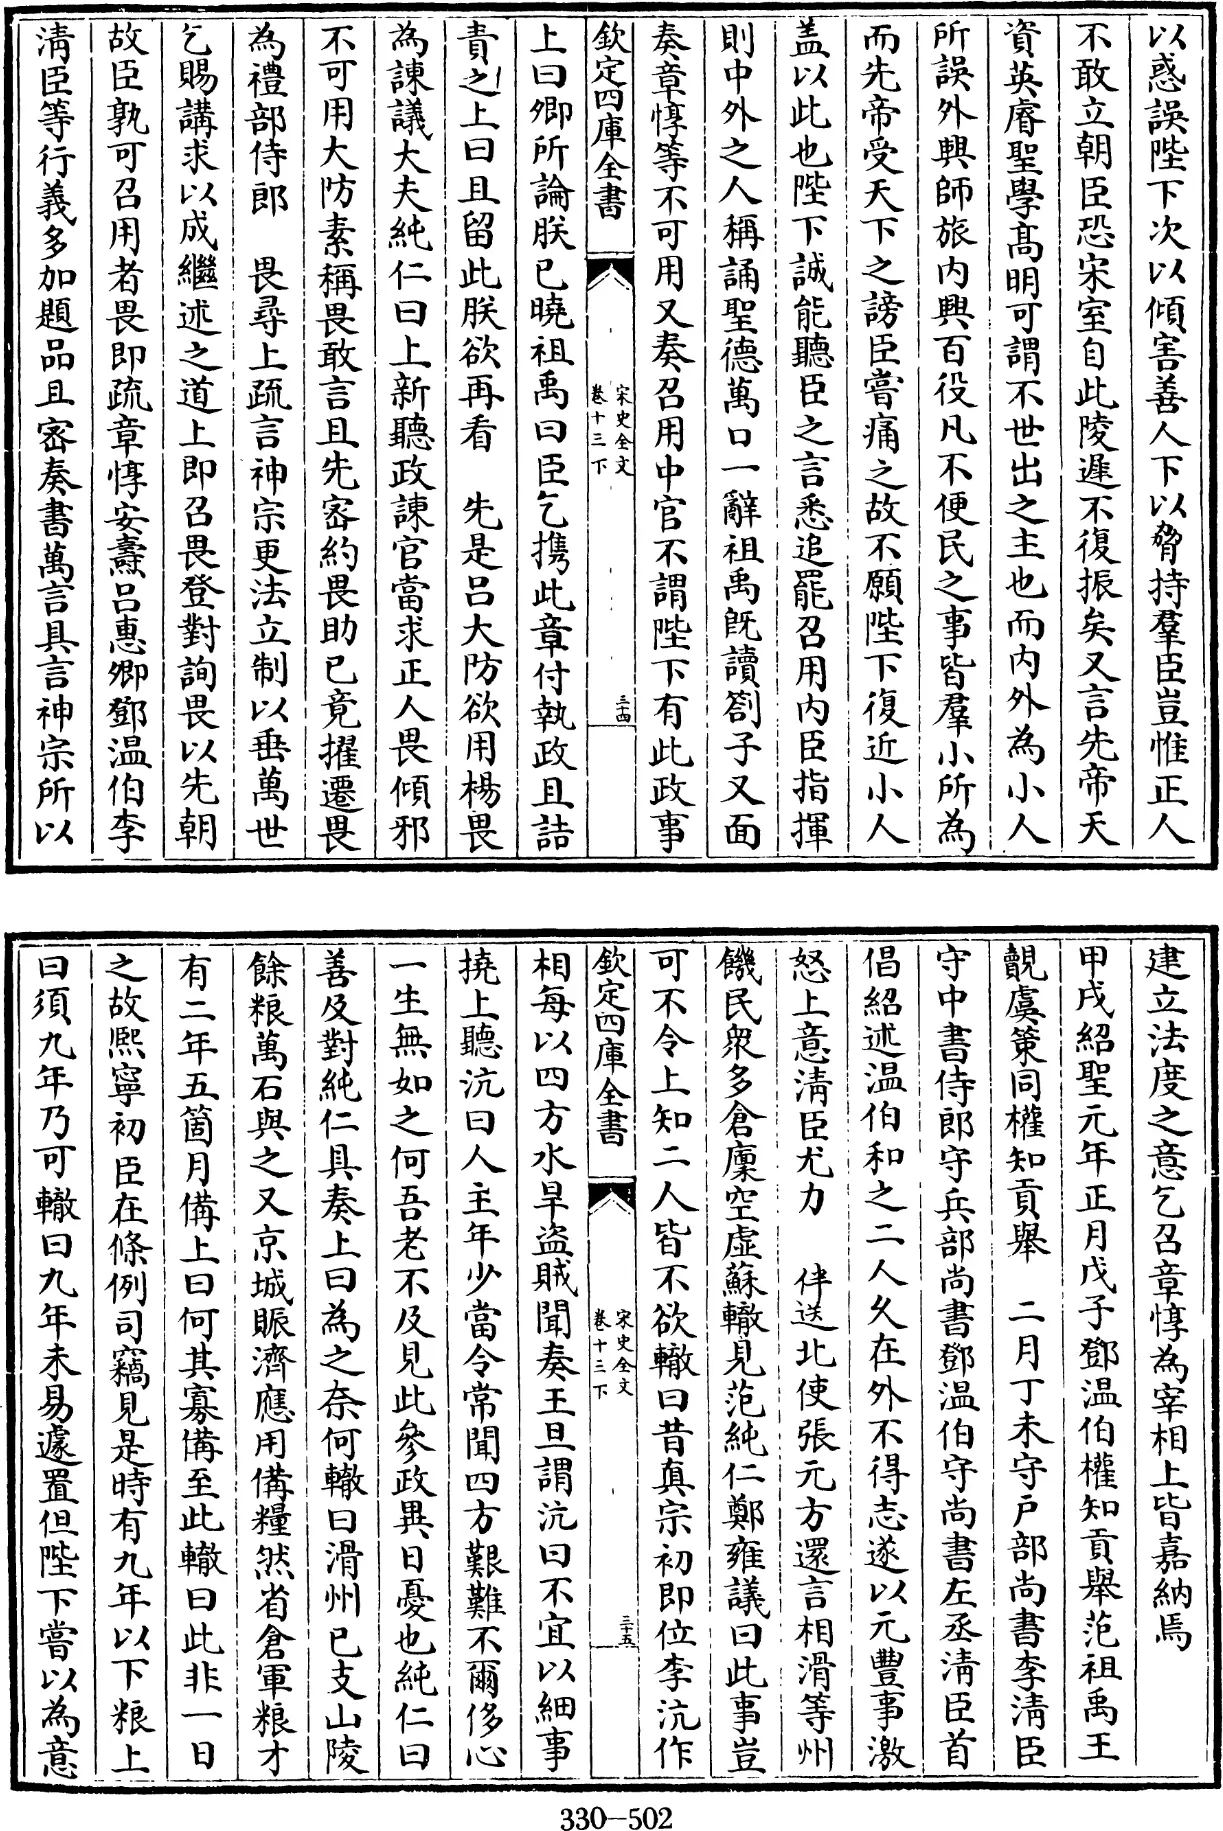 以惑誤陛下次以傾害善人下以脅持羣臣豈惟正人
不敢立朝臣恐宋室自此陵遲不復振矣又言先帝天
資英睿聖學髙明可謂不世出之主也而内外為小人
所誤外興師旅内興百役凡不便民之事皆羣小所為
而先帝受天下之謗臣嘗痛之故不願陛下復近小人
盖以此也陛下誠能聽臣之言悉追罷召用内臣指揮
則中外之人稱誦聖德萬口一辭祖禹既讀劄子又面
奏章惇等不可用又奏召用中官不謂陛下有此政事
欽定四庫全書
宋史全文
卷十三下
三十四
上曰卿所論朕已曉祖禹曰臣乞擕此章付執政且詰
責之上曰且留此朕欲再看 先是吕大防欲用楊畏
為諫議大夫純仁曰上新聽政諫官當求正人畏傾邪
不可用大防素稱畏敢言且先宻約畏助已竟擢遷畏
為禮部侍郎 畏尋上疏言神宗更法立制以垂萬世
乞賜講求以成繼述之道上即召畏登對詢畏以先朝
故臣孰可召用者畏即疏章惇安燾吕惠卿鄧温伯李
清臣等行義多加題品且宻奏書萬言具言神宗所以
建立法度之意乞召章惇為宰相上皆嘉納焉
甲戌紹聖元年正月戊子鄧温伯權知貢舉范祖禹王
覿虞策同權知貢舉 二月丁未守戸部尚書李清臣
守中書侍郎守兵部尚書鄧温伯守尚書左丞清臣首
倡紹述温伯和之二人乆在外不得志遂以元豐事激
怒上意清臣尤力 伴送北使張元方還言相滑等州
饑民衆多倉廩空虚蘇轍見范純仁鄭雍議曰此事豈
可不令上知二人皆不欲轍曰昔真宗初即位李沆作
欽定四庫全書
宋史全文
卷十三下
三十五
相每以四方水旱盗賊聞奏王旦謂沆曰不宜以細事
撓上聽沆曰人主年少當令常聞四方艱難不爾侈心
一生無如之何吾老不及見此參政異日憂也純仁曰
善及對純仁具奏上曰為之奈何轍曰滑州已支山陵
餘粮萬石與之又京城賑濟應用備糧然省倉軍粮才
有二年五箇月備上曰何其寡備至此轍曰此非一日
之故熙寧初臣在條例司竊見是時有九年以下粮上
曰須九年乃可轍曰九年未易遽置但陛下嘗以為意
330-502